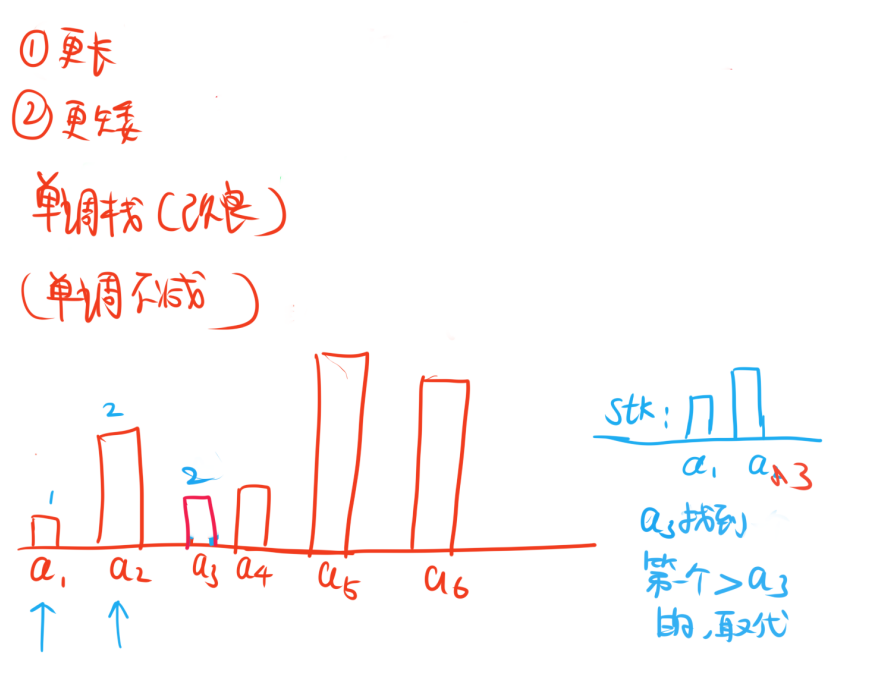 ①更长
②更矮
单调栈(改良)
(单调不减)
2
1
2
a₁ a₂ a₃ a₄ a₅ a₆
stk:
a₁ a₃
a₃找到
第一个>a₃
的,取代